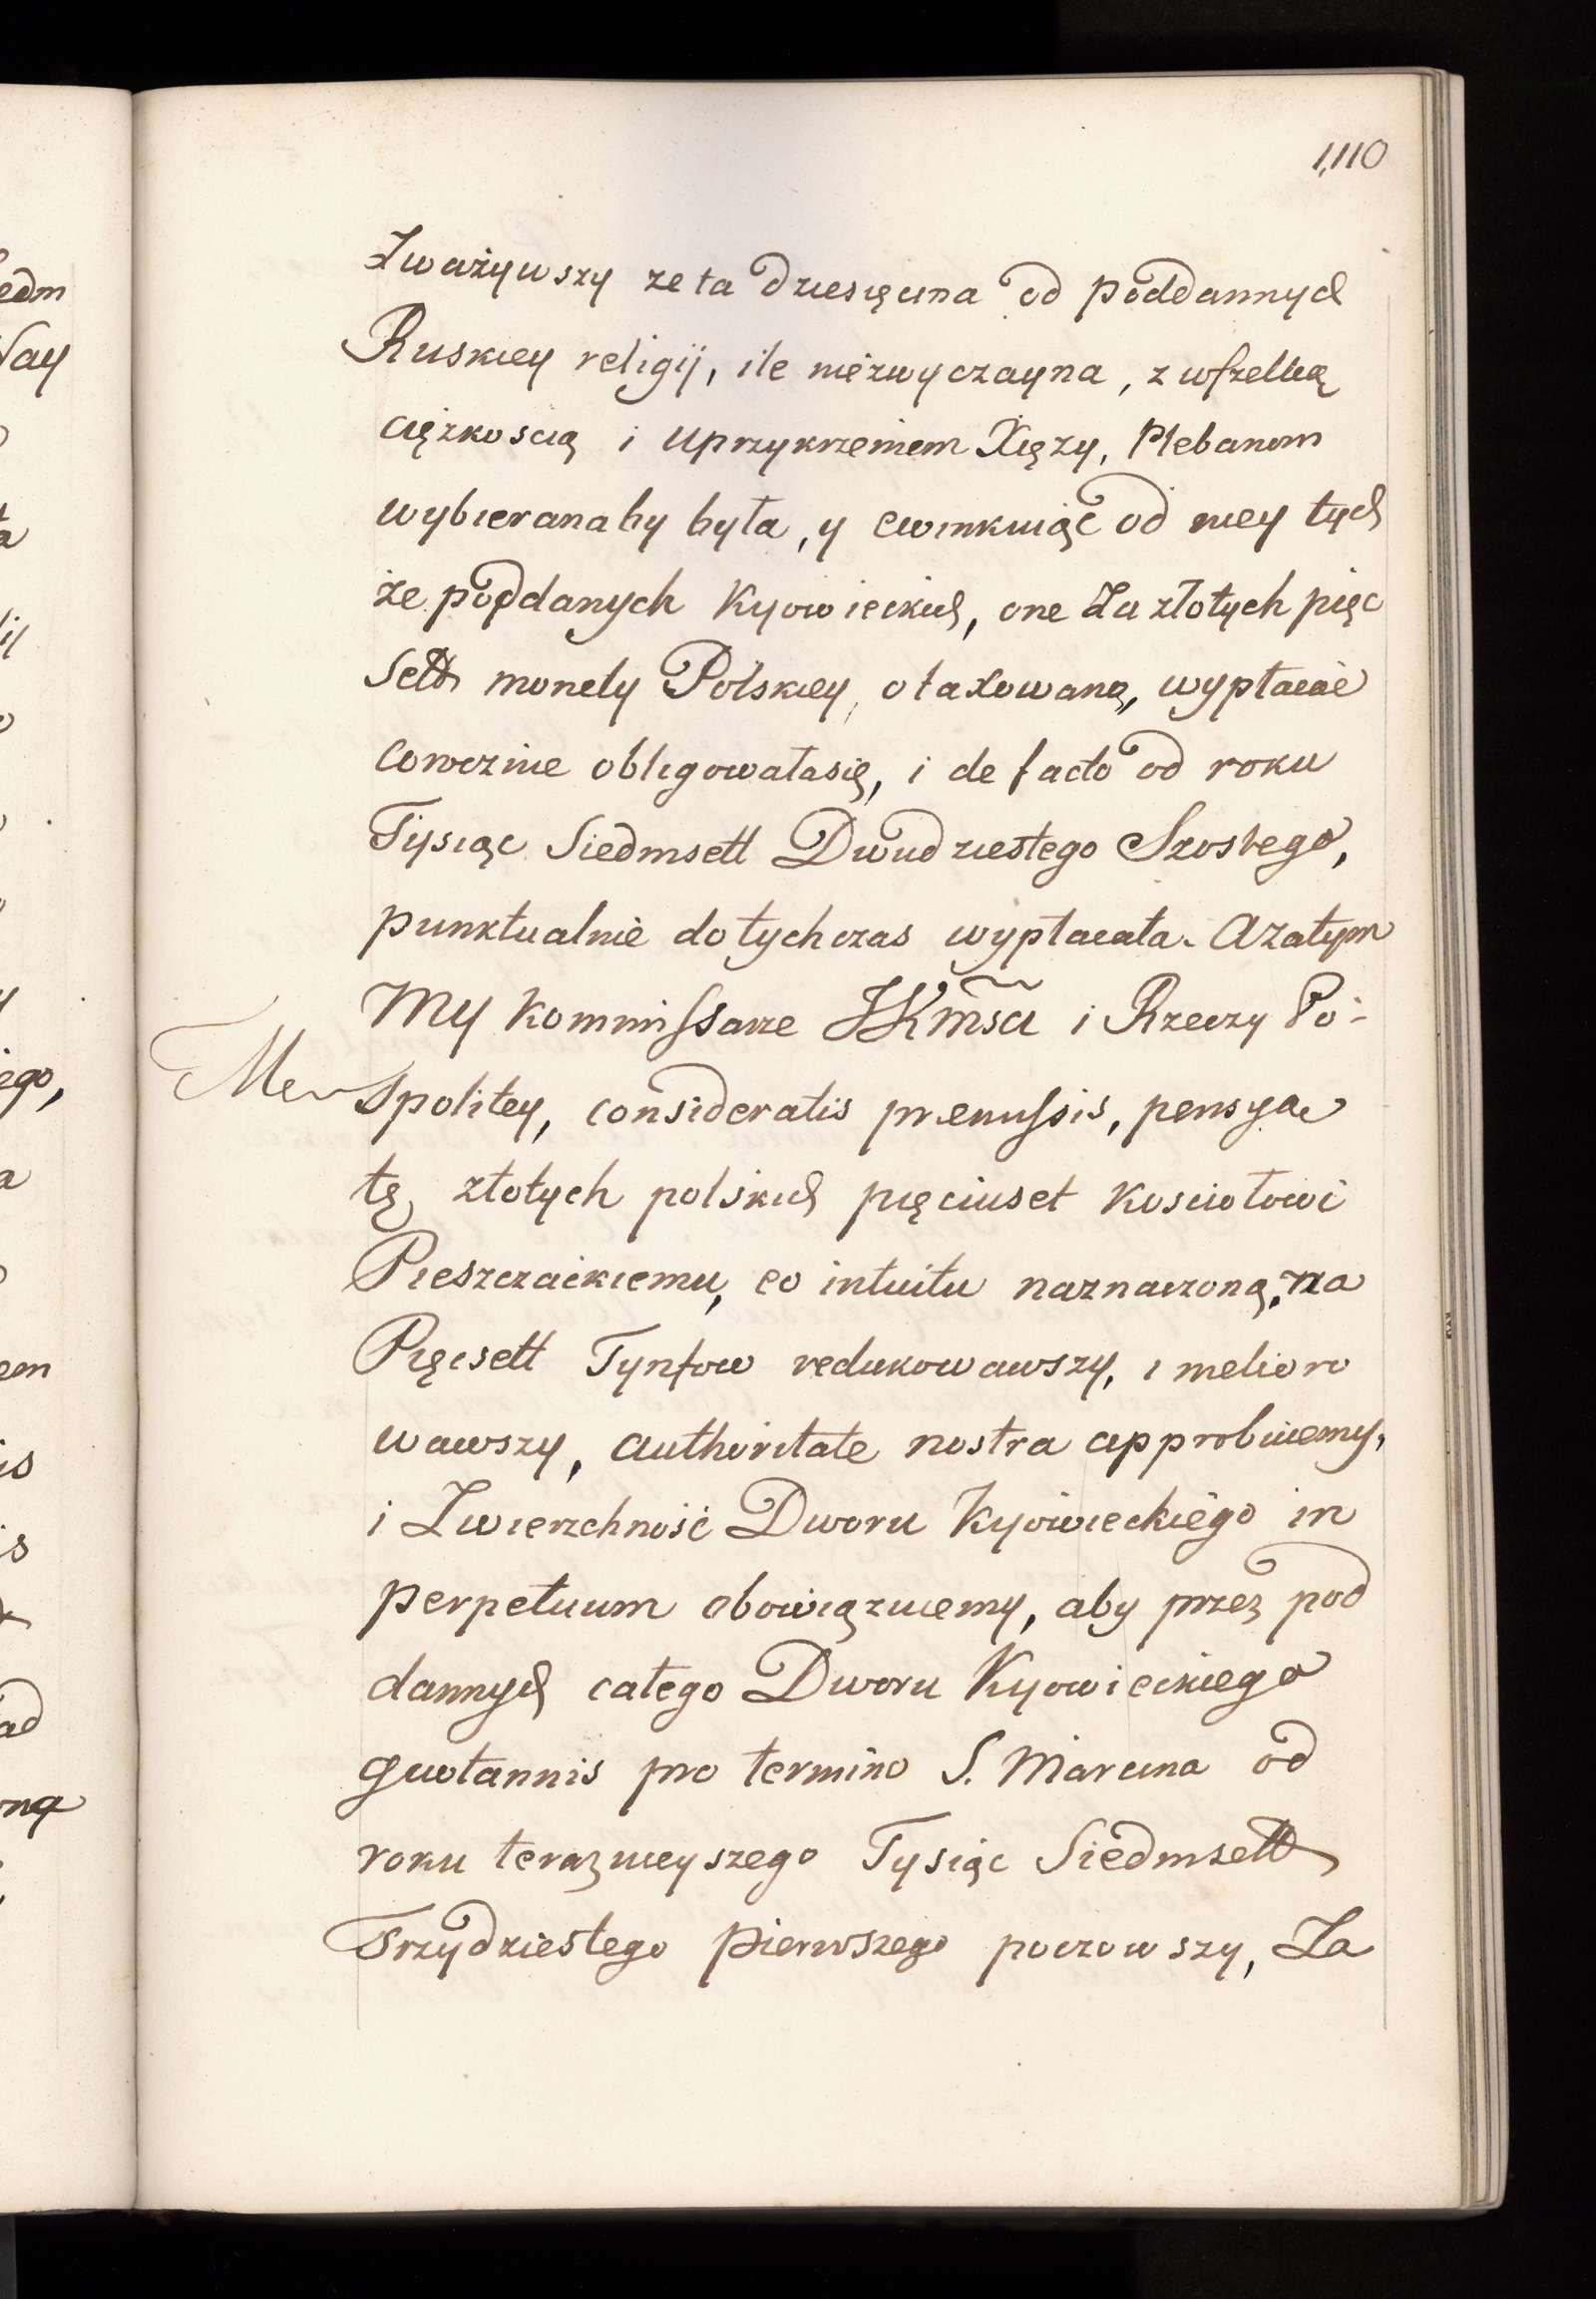 1,110
Zważywszy ze ta dziesięcina od poddannych
Ruskiey religij, ile niezwyczayna, z wszelką
ciężkoscią i uprzykrzeniem Xięzy, Plebanom
wybieranaby była, y ewinkuiąc od niey tych
że poddanych Kyowieckich, one za złotych pięc
Sett monety Polskiey, otaxowaną, wypłacać
corocznie obligowałasię, i de facto od roku
Tysiąc Siedmsett Dwudziestego Szostego,
punktualnie dotychczas wypłacała. A zatym
My Kommissarze JKMsci i Rzeczy Po-
spolitey, consideratis premissis, pensya
tę złotych polskich pięciuset Kosciołowi
Pieszczackiemu, eo intuitu naznaczoną, na
Pięcsett Tynfow redukowawszy, i melioro
wawszy, authoritate nostra approbuiemy,
i Zwierzchność Dworu Kyowieckiego in
perpetuum obowiązuiemy, aby przez pod
dannych całego Dworu Kyowieckiego
quotannis pro termino S. Marcina od
roku teraznieyszego Tysiąc Siedmsett
Trzydziestego pierwszego poczowszy, Za
edm
ego,
em
is
is
ad